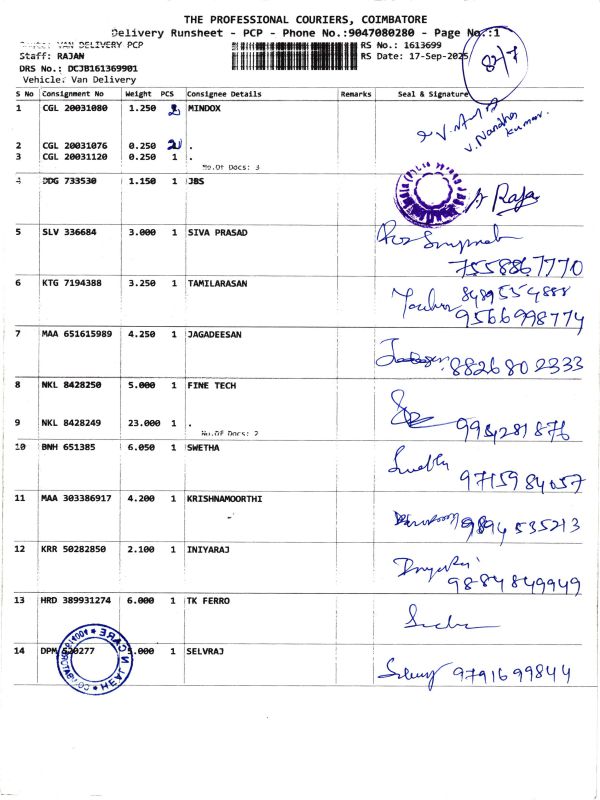 THE PROFESSIONAL COURIERS, COIMBATORE
Delivery Runsheet - PCP - Phone No.:9047080280 - Page No.:1
VAN DELIVERY PCP
RS No.: 1613699
Staff: RAJAN
RS Date: 17-Sep-2025
DRS No.: DCJB161369901
Vehicle: Van Delivery
S No Consignment No Weight PCS Consignee Details Remarks Seal & Signature
1 CGL 20031080 1.250 2 MINDOX
V. Nandha Kumar.
2 CGL 20031076 0.250 .
3 CGL 20031120 0.250 1 .
No.Of Docs: 3
4 DDG 733530 1.150 1 JBS
Raja
5 SLV 336684 3.000 1 SIVA PRASAD
7558867770
6 KTG 7194388 3.250 1 TAMILARASAN
8489554888
9566998774
7 MAA 651615989 4.250 1 JAGADEESAN
8826802333
8 NKL 8428250 5.000 1 FINE TECH
9 NKL 8428249 23.000 1 .
No.Of Docs: 2
10 BNH 651385 6.050 1 SWETHA
Swetha
11 MAA 303386917 4.200 1 KRISHNAMOORTHI
9894535213
12 KRR 50282850 2.100 1 INIYARAJ
9884849949
13 HRD 389931274 6.000 1 TK FERRO
14 DPM 1 SELVRAJ
9791699844